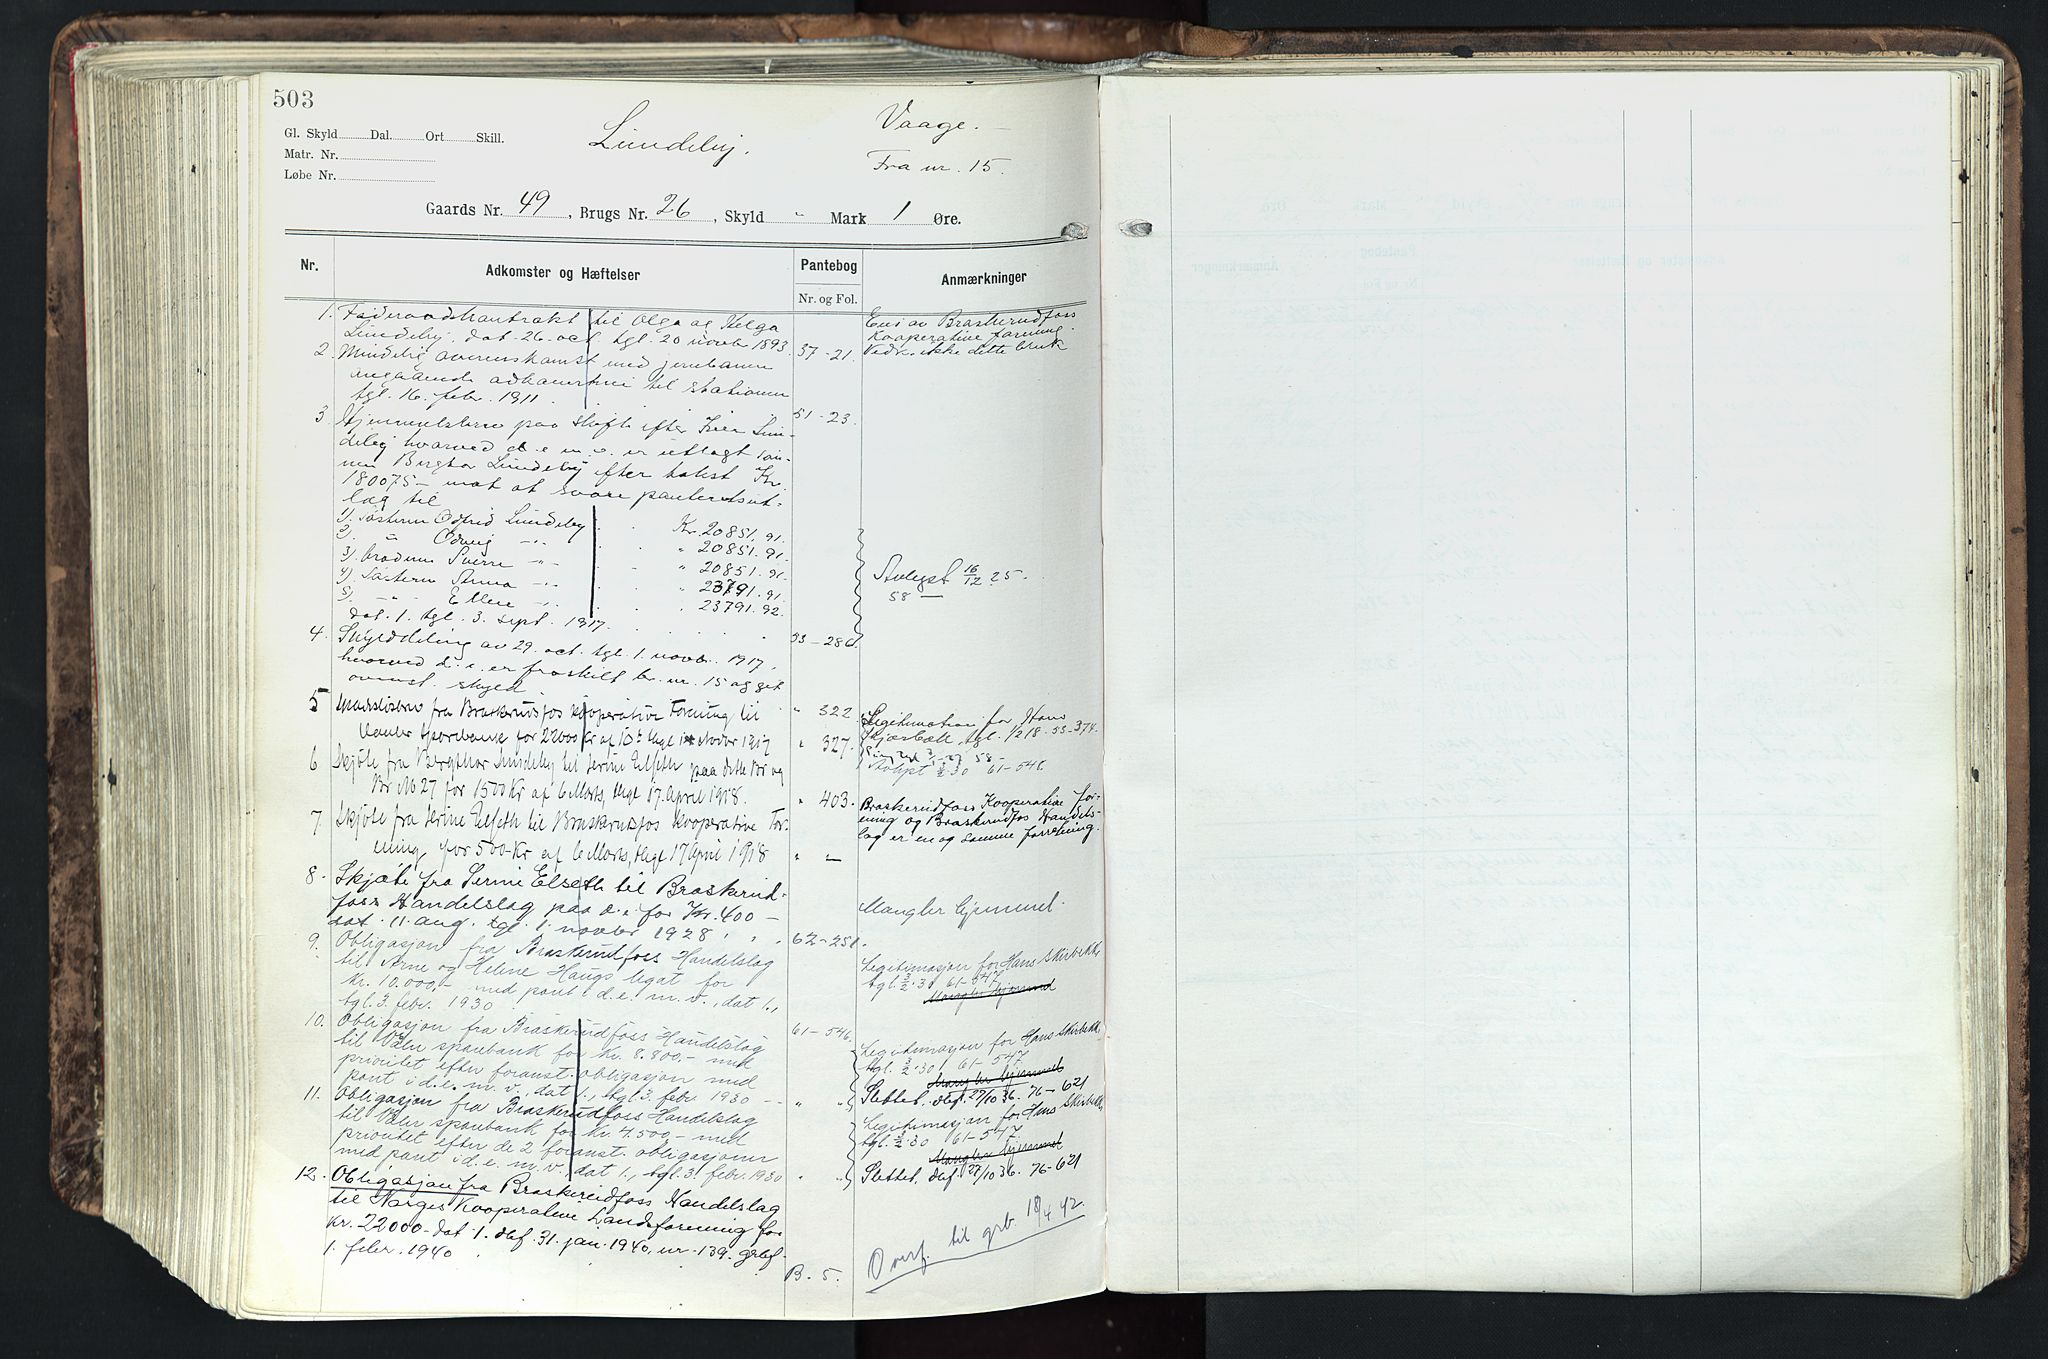 503
Gl. Skyld Dal. Ort Skill.
Matr. Nr.
Løbe Nr.
Lundeby.
Vaage.
Fra nr. 15.
Gaards Nr. 49, Brugs Nr. 26, Skyld " Mark 1 Øre.
Nr. Adkomster og Hæftelser Pantebog Anmærkninger
Nr. og Fol.
1. Føderaadskontrakt til Olga og Helga
Lundeby, dat. 26. oct. tgl. 20 novbr 1893. 37-21.
Eies av Braskerudfoss
Kooperative forening.
Vedk. ikke dette bruk
2. Mindelig overenskomst med jernbanen
angaaende adkomstvei til stationen
tgl. 16. febr. 1911. 51-23.
3. Hjemmelsbrev paa skifte efter Iver Lun-
deby hvorved d. e. m. v. er utlagt søn-
nen Bergtor Lundeby efter takst Kr.
18007.5- mot at svare panteretsut-
læg til
1). Søsteren Odfrid Lundeby Kr. 20851.91.
2). " Odveig -"- " 20851.91.
3) broderen Sverre -"- " 20851.91.
4). Søsteren Anna -"- " 23791.91.
5) -"- Ellen -"- " 23791.92.
dat. 1. tgl. 3. sept. 1917. 53-286.
Avlyst 16/12 25.
58 —
4. Skylddeling av 29. oct. tgl. 1. novbr. 1917,
hvorved d. e. er fraskilt br. nr. 15 og git
ovenst. skyld " 322.
5 fra Braskerudfos kooperative Forening til
Vaaler Sparebank for 22000 Kr af 10de thgl Novbr 1917 " 327.
Legitimation for Hans
Skjæsbæk, tgl. 1/2 18. 53-374.
58-
Avlyst 3/2 30 61-546.
6 Skjøte fra Bergthor Lundeby til Serine Elseth paa dette Br og
Br No 27 for 1500 Kr af 6 Marts, thgl 17 April 1918. " 403.
7 Skjøte fra Serine Elseth til Braskerudfos kooperative For-
ening, for 500 Kr af 6 Marts, thgl 17 April 1918 " —
Braskerudfoss Kooperative for-
ening og Braskerudfos Handels-
lag er en og samme forretning.
8. Skjøte fra Serine Elseth til Braskerud-
foss Handelslag paa d. e. for Kr. 400-
dat. 11. aug. tgl. 1. novbr 1928 62-251.
Mangler hjemmel.
9. Obligasjon fra Braskerudfoss Handelslag
til Arne og Helene Haugs legat for
kr. 10.000,- med pant i d. e. m. v., dat 1.,
tgl. 3. febr. 1930 61-546.
Legitimasjon for Hans Skirbekk,
tgl. 3/2 30 61-547
Mangler hjemmel
10. Obligasjon fra Braskerudfoss Handelslag
til Våler sparebank for kr. 8.800,- med
prioritet efter foranst. obligasjon med
pant i d. e. m. v., dat 1., tgl 3. febr. 1930 -- " "
Legitimasjon for Hans Skirbekk,
tgl. 3/2 30 61-547
Mangler hjemmel
Slettet. def. 27/10 36. 76-621
11. Obligasjon fra Braskerudfoss Handelslag
til Våler sparebank for kr. 4.500,- med
prioritet efter de 2 foranst. obligasjoner
med pant i d. e. m. v., dat 1., tgl 3. febr. 1930 " "
Legitimasjon for Hans Skirbekk,
tgl. 3/2 30 61-547
Mangler hjemmel
Slettet. def. 27/10 36. 76-621
12. Obligasjon fra Braskerudfoss Handelslag
til Norges Kooperative Landsforening for
kr. 22000- dat. 1. def. 31. jan. 1940, nr. 139. grbf.
1. febr. 1940 B. 5.
Overf. til grb. 18/4 42.